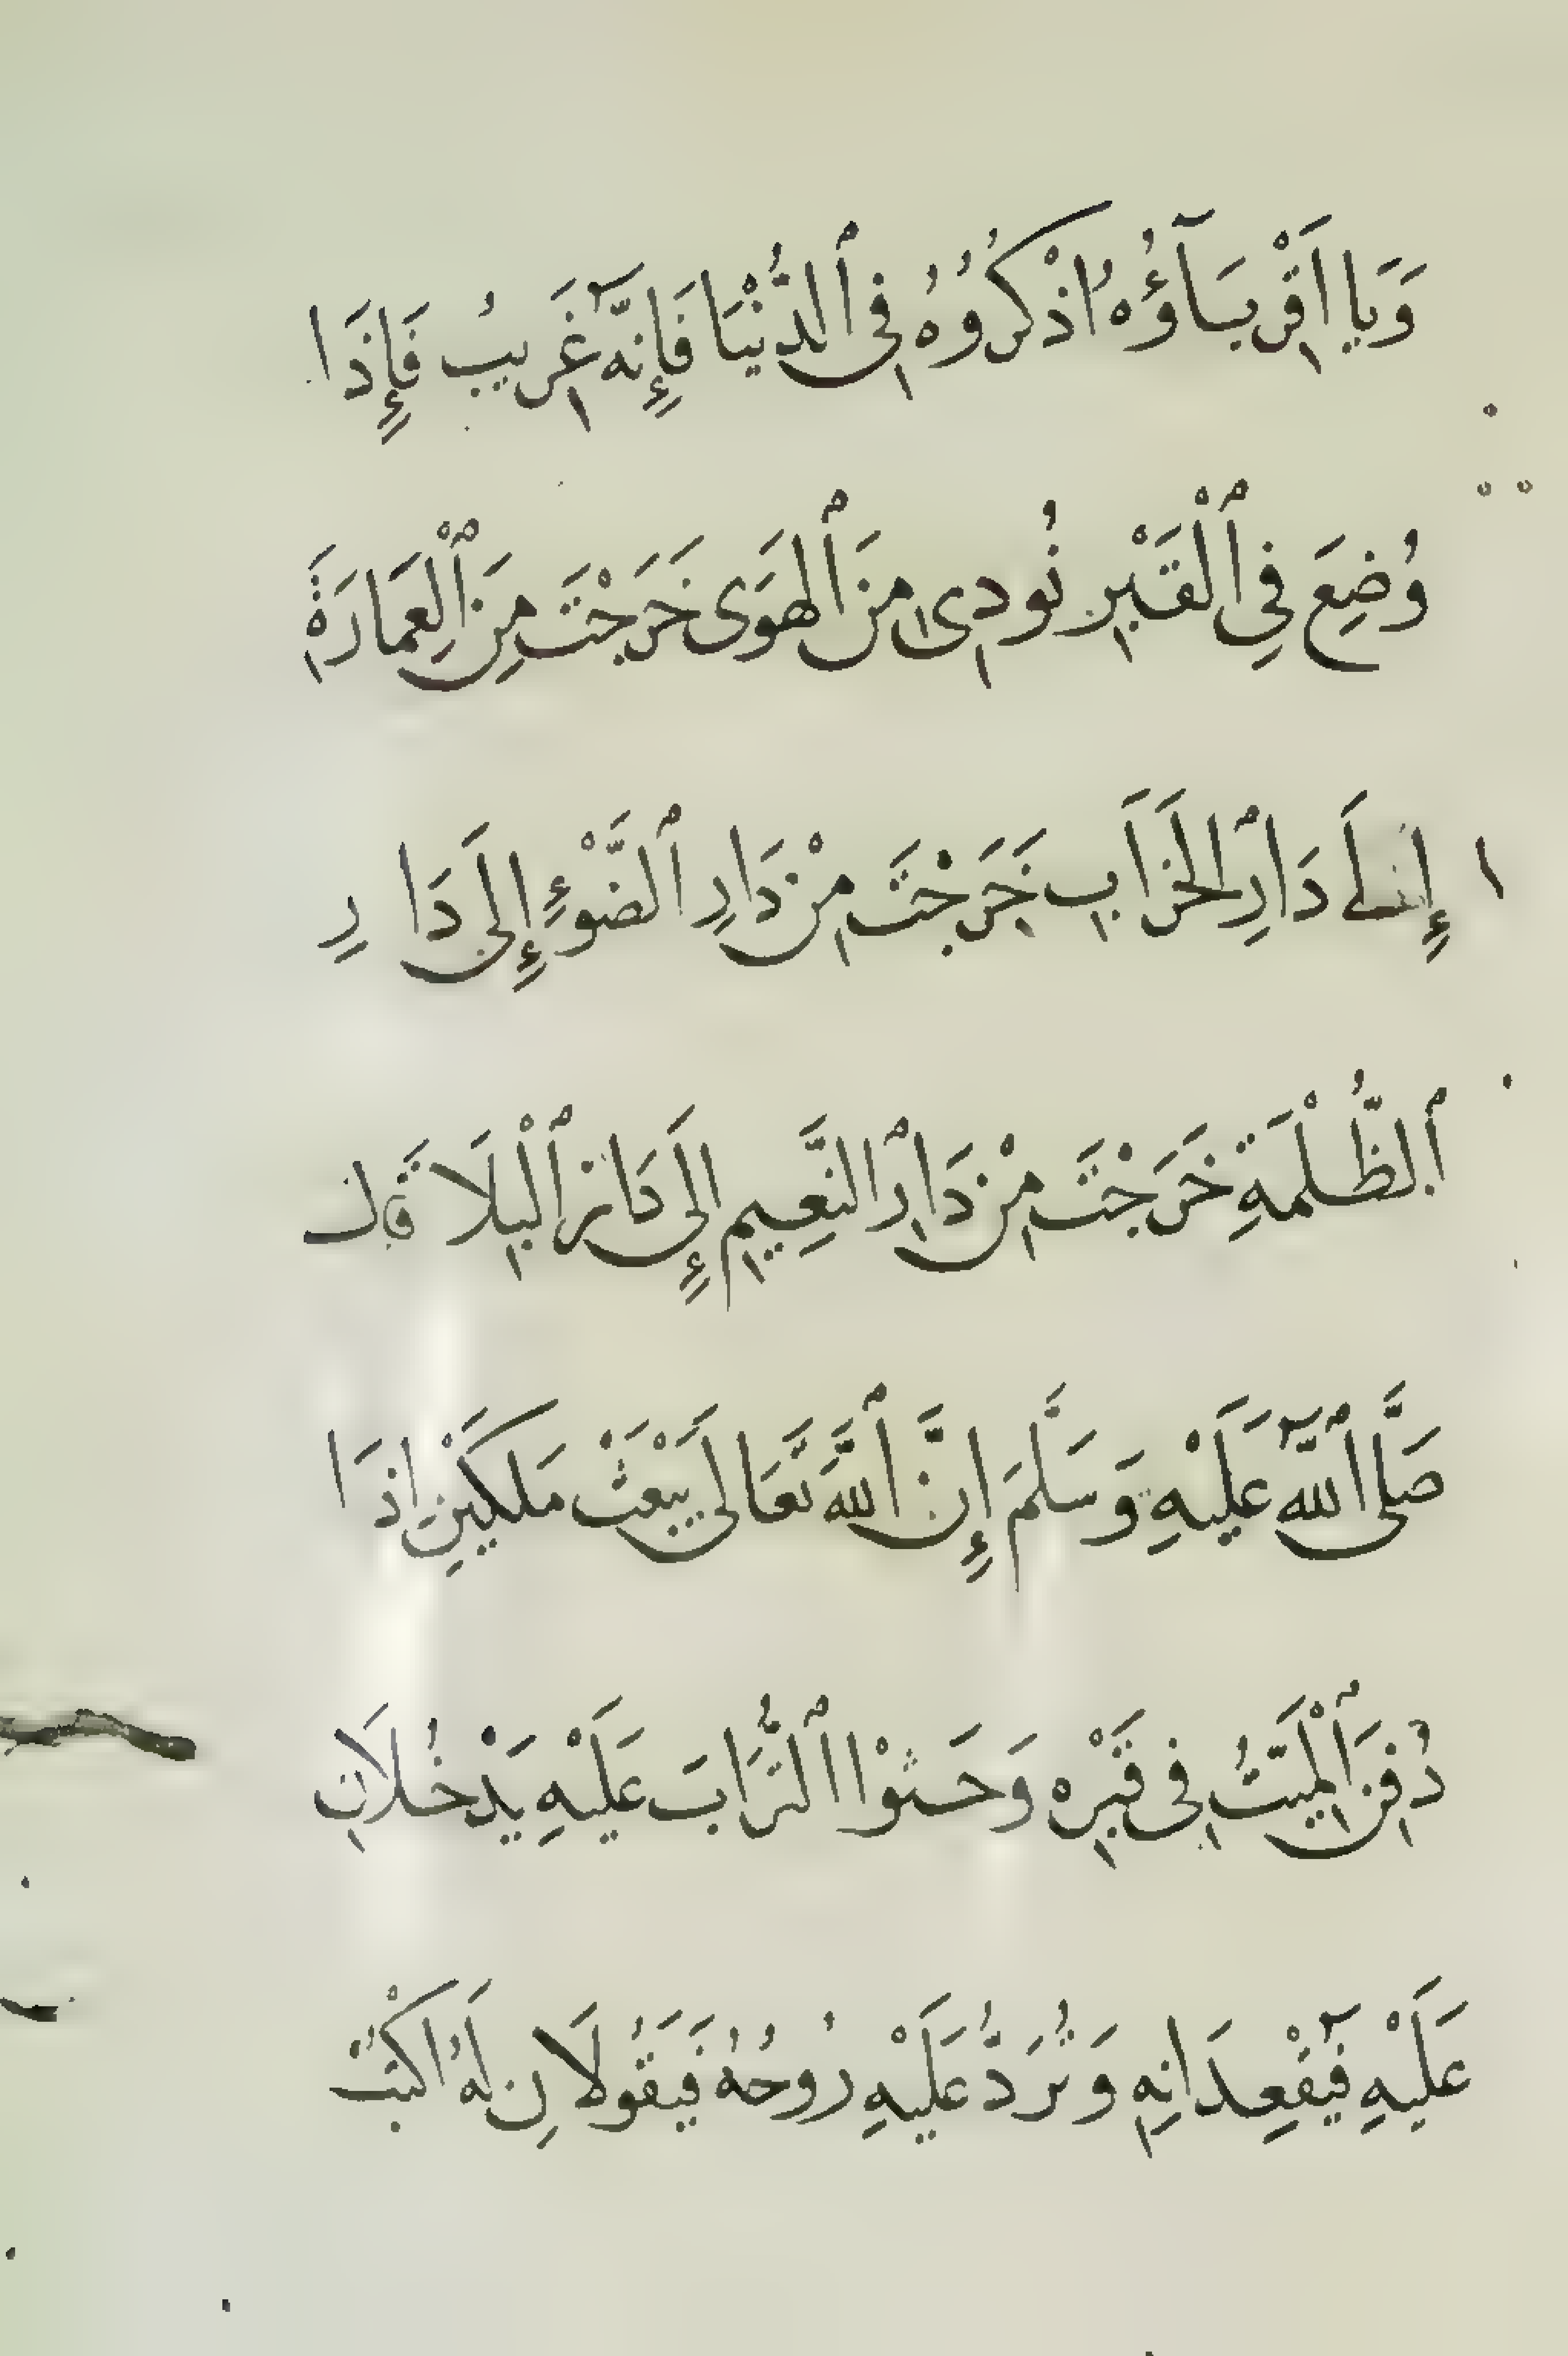 وَيَا اَقْرِبَآؤُهُ اذْكُرُوهُ فِى ٱلدُّنْيَا فَإِنَّهُ غَرِيبُ فَإِذَا
وُضِعَ فِي ٱلْقَبْرِ نُودِىَ مِنَ ٱلهَوَى خَرَجْتَ مِنَ ٱلْعِمَارَةِ
إِلَى دَارِ ٱلخَرَابِ خَرَجْتَ مِنْ دَارِ ٱلضَّوْءِ إِلَى دَارِ
ٱلظُّلْمَةِ خَرَجْتَ مِنْ دَارِ ٱلنَّعِيمِ إِلَى دَارِ ٱلْبِلَا قَالَ
صَلَّى ٱللَّهُ عَلَيْهِ وَسَلَّمَ إِنَّ ٱللَّهَ تَعَالَى يَبْعَثْ مَلَكَيْنِ اِذَا
دُفِنَ ٱلْمَيِّتُ فِى قَبْرِهِ وَحَثَوْا ٱلتُّرَابَ عَلَيْهِ يَدْخُلَانِ
عَلَيْهِ فَيُقْعِدَانِهِ وَتُرَدُّ عَلَيْهِ رُوحُهُ فَيَقُولَانِ لَهُ اكْتُبْ